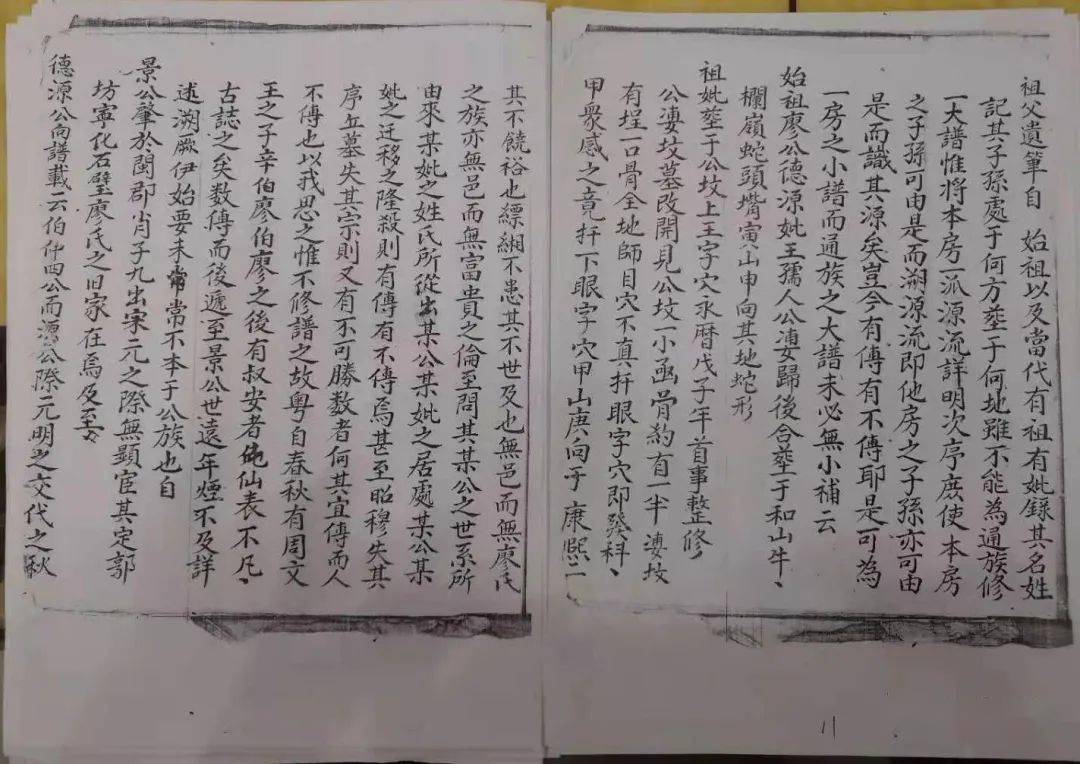 祖父遺筆自　始祖以及當代有祖有妣錄其名姓
記其子孫處于何方塟于何地雖不能為通族修
一大譜惟將本房一派源流詳明次序庶使本房
之子孫可由是而溯源流即他房之子孫亦可由
是而識其源矣豈今有傳有不傳耶是可為
一房之小譜而通族之大譜未必無小補云
始祖廖公德源妣王孺人公婆歸後合塟于和山牛、
欄嶺蛇頭嘴寅山申向其地蛇形
祖妣塟于公坟上王字穴永曆戊子年首事整修
公婆坟墓改開見公坟一小函骨約有一半婆坟
有埕一口骨全地師目穴不真扦眼字穴即發科、
甲衆感之竟扦下眼字穴甲山庚向于康熙二
其不饒裕也縹緗不患其不世及也無邑而無廖氏
之族亦無邑而無富貴之倫至問其某公之世系所
由來某妣之姓氏所從出某公某妣之居處某公某
妣之迁移之隆殺則有傳有不傳焉甚至昭穆失其
序丘墓失其宗則又有不可勝数者何其宜傳而人
不傳也以我思之惟不修譜之故粵自春秋有周文
王之子辛伯廖伯廖之後有叔安者仙表不凡、
古誌之矣数傳而後遞至景公世遠年煙不及詳
述溯厥伊始要未常不本于公族也自
景公肇於閩郡肖子九出宋元之際無顯宦其定鄣
坊寧化石壁廖氏之旧家在焉及至
德源公向譜載云伯仲四公而源公際元明之交代之秋
11